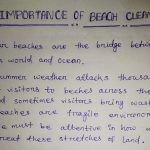 IMPORTANCE OF BEACH CLEAN
beaches are the bridge betwe
world and ocean.
summer weather attacks thousa
visitors to beches across the
d sometimes visitors bring waste
beaches are fragile environm
must be attentive in how w
treat these stretches of land.